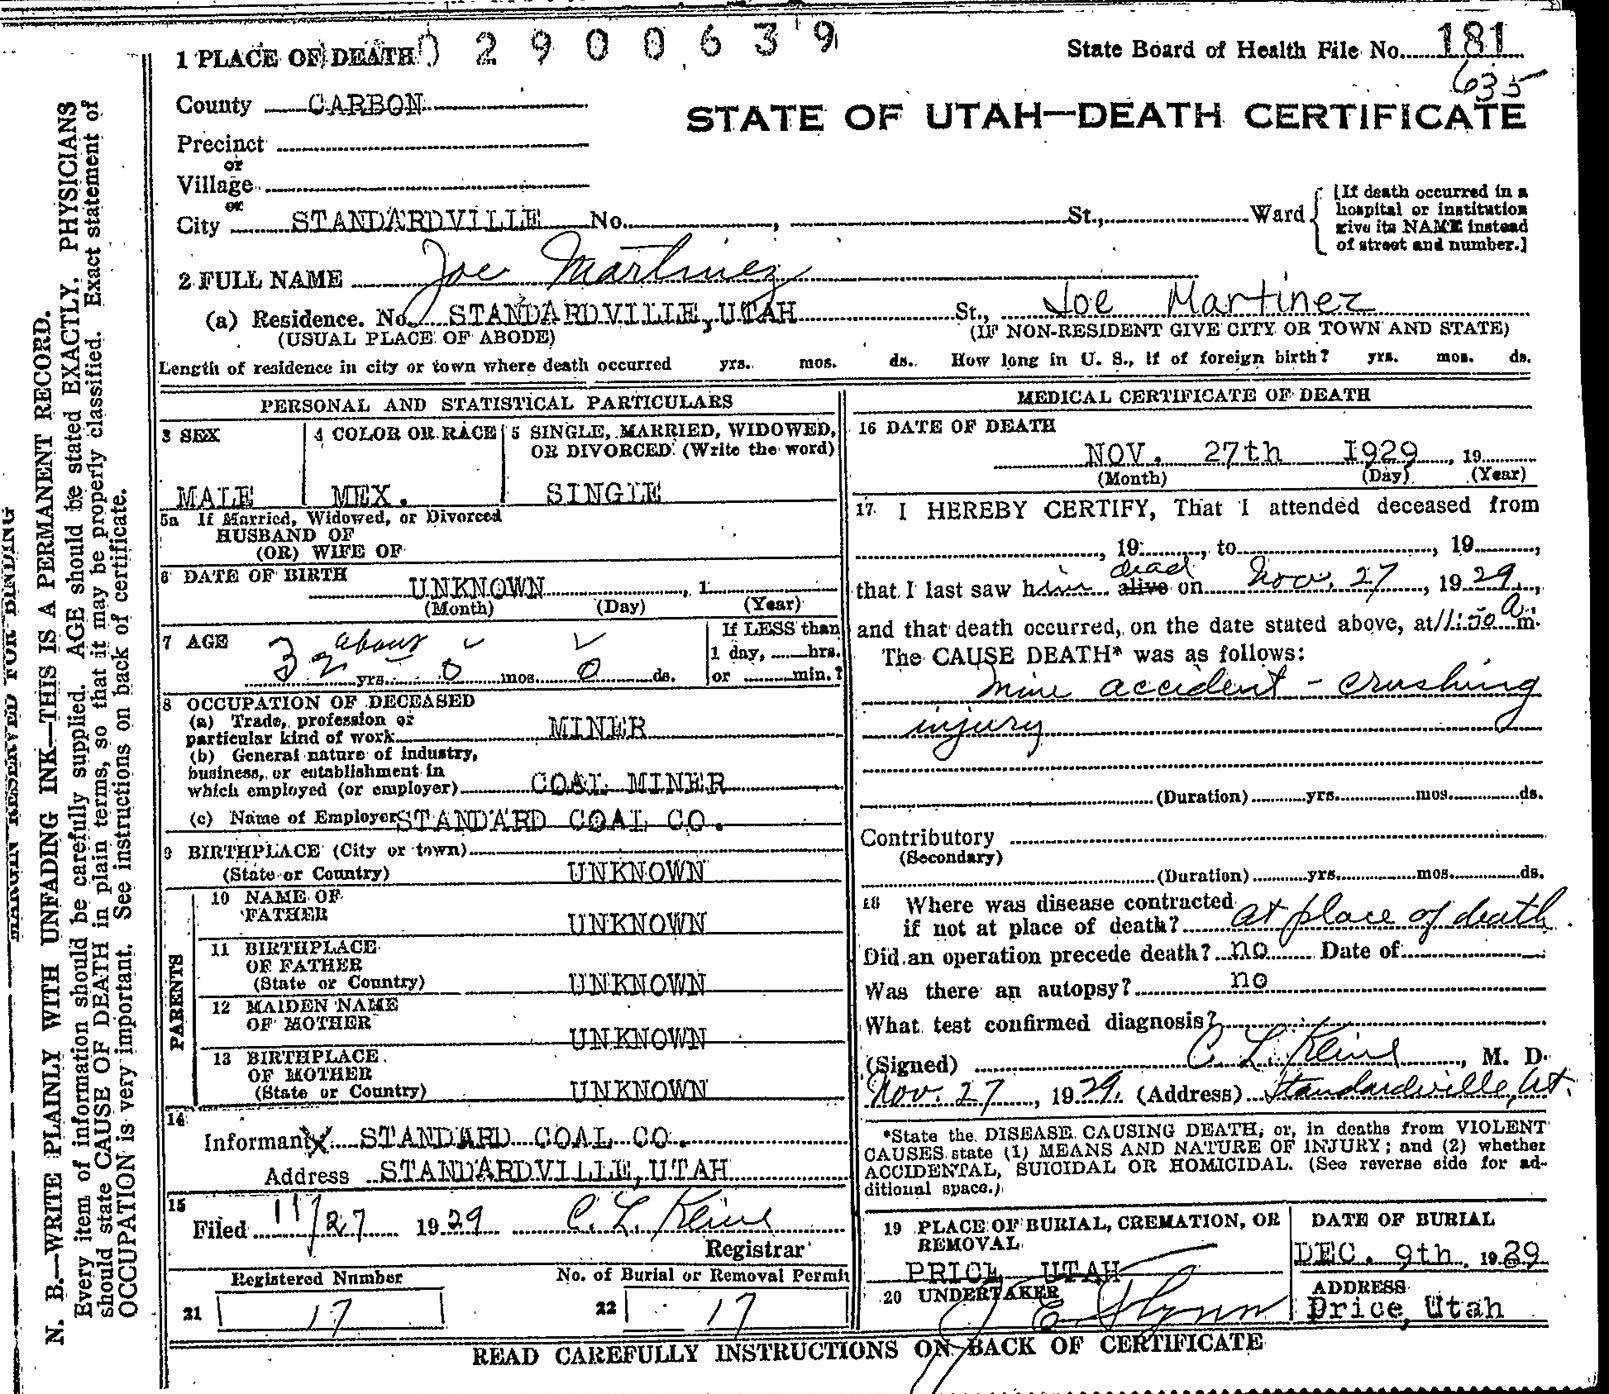 1 PLACE OF DEATH 0 2 9 0 0 6 3 9
State Board of Health File No. 181
635
County CARBON
STATE OF UTAH—DEATH CERTIFICATE
Precinct
or
Village
or
City STANDARDVILLE No. , St., Ward
[If death occurred in a
hospital or institution
give its NAME instead
of street and number.]
2 FULL NAME Joe Martinez
(a) Residence. No. STANDARDVILLE, UTAH St., Joe Martinez
(USUAL PLACE OF ABODE) (IF NON-RESIDENT GIVE CITY OR TOWN AND STATE)
Length of residence in city or town where death occurred yrs. mos. ds. How long in U. S., if of foreign birth? yrs. mos. ds.
PERSONAL AND STATISTICAL PARTICULARS
3 SEX
MALE
4 COLOR OR RACE
MEX.
5 SINGLE, MARRIED, WIDOWED,
OR DIVORCED (Write the word)
SINGLE
5a If Married, Widowed, or Divorced
HUSBAND OF
(OR) WIFE OF
6 DATE OF BIRTH
UNKNOWN , 1
(Month) (Day) (Year)
7 AGE about
32 yrs. 0 mos. 0 ds.
If LESS than
1 day, hrs.
or min.?
8 OCCUPATION OF DECEASED
(a) Trade, profession or
particular kind of work MINER
(b) General nature of industry,
business, or establishment in
which employed (or employer) COAL MINER
(c) Name of Employer STANDARD COAL CO.
9 BIRTHPLACE (City or town)
(State or Country) UNKNOWN
PARENTS
10 NAME OF
FATHER UNKNOWN
11 BIRTHPLACE
OF FATHER
(State or Country) UNKNOWN
12 MAIDEN NAME
OF MOTHER UNKNOWN
13 BIRTHPLACE
OF MOTHER
(State or Country) UNKNOWN
14
Informant X STANDARD COAL CO.
Address STANDARDVILLE, UTAH
15
Filed 11/27 1929 C. L. Kline
Registrar
Registered Number
21 17
No. of Burial or Removal Permit
22 17
MEDICAL CERTIFICATE OF DEATH
16 DATE OF DEATH
NOV. 27th 1929 , 19
(Month) (Day) (Year)
17 I HEREBY CERTIFY, That I attended deceased from
, 19 , to , 19 ,
dead
that I last saw him alive on Nov. 27 , 1929.,
and that death occurred, on the date stated above, at 11:50 A m.
The CAUSE DEATH* was as follows:
Mine accident - crushing
injury
(Duration) yrs. mos. ds.
Contributory
(Secondary)
(Duration) yrs. mos. ds.
18 Where was disease contracted
if not at place of death? at place of death.
Did an operation precede death? no Date of
Was there an autopsy? no
What test confirmed diagnosis?
(Signed) C L Kline , M. D.
Nov. 27 , 1929. (Address) Standardville, Ut.
*State the DISEASE CAUSING DEATH, or, in deaths from VIOLENT
CAUSES state (1) MEANS AND NATURE OF INJURY; and (2) whether
ACCIDENTAL, SUICIDAL OR HOMICIDAL. (See reverse side for ad-
ditional space.)
19 PLACE OF BURIAL, CREMATION, OR
REMOVAL
PRICE UTAH
DATE OF BURIAL
DEC. 9th 1929
20 UNDERTAKER
J E Flynn
ADDRESS
Price, Utah
READ CAREFULLY INSTRUCTIONS ON BACK OF CERTIFICATE
MARGIN RESERVED FOR BINDING
N. B.—WRITE PLAINLY WITH UNFADING INK—THIS IS A PERMANENT RECORD.
Every item of information should be carefully supplied. AGE should be stated EXACTLY. PHYSICIANS
should state CAUSE OF DEATH in plain terms, so that it may be properly classified. Exact statement of
OCCUPATION is very important. See instructions on back of certificate.